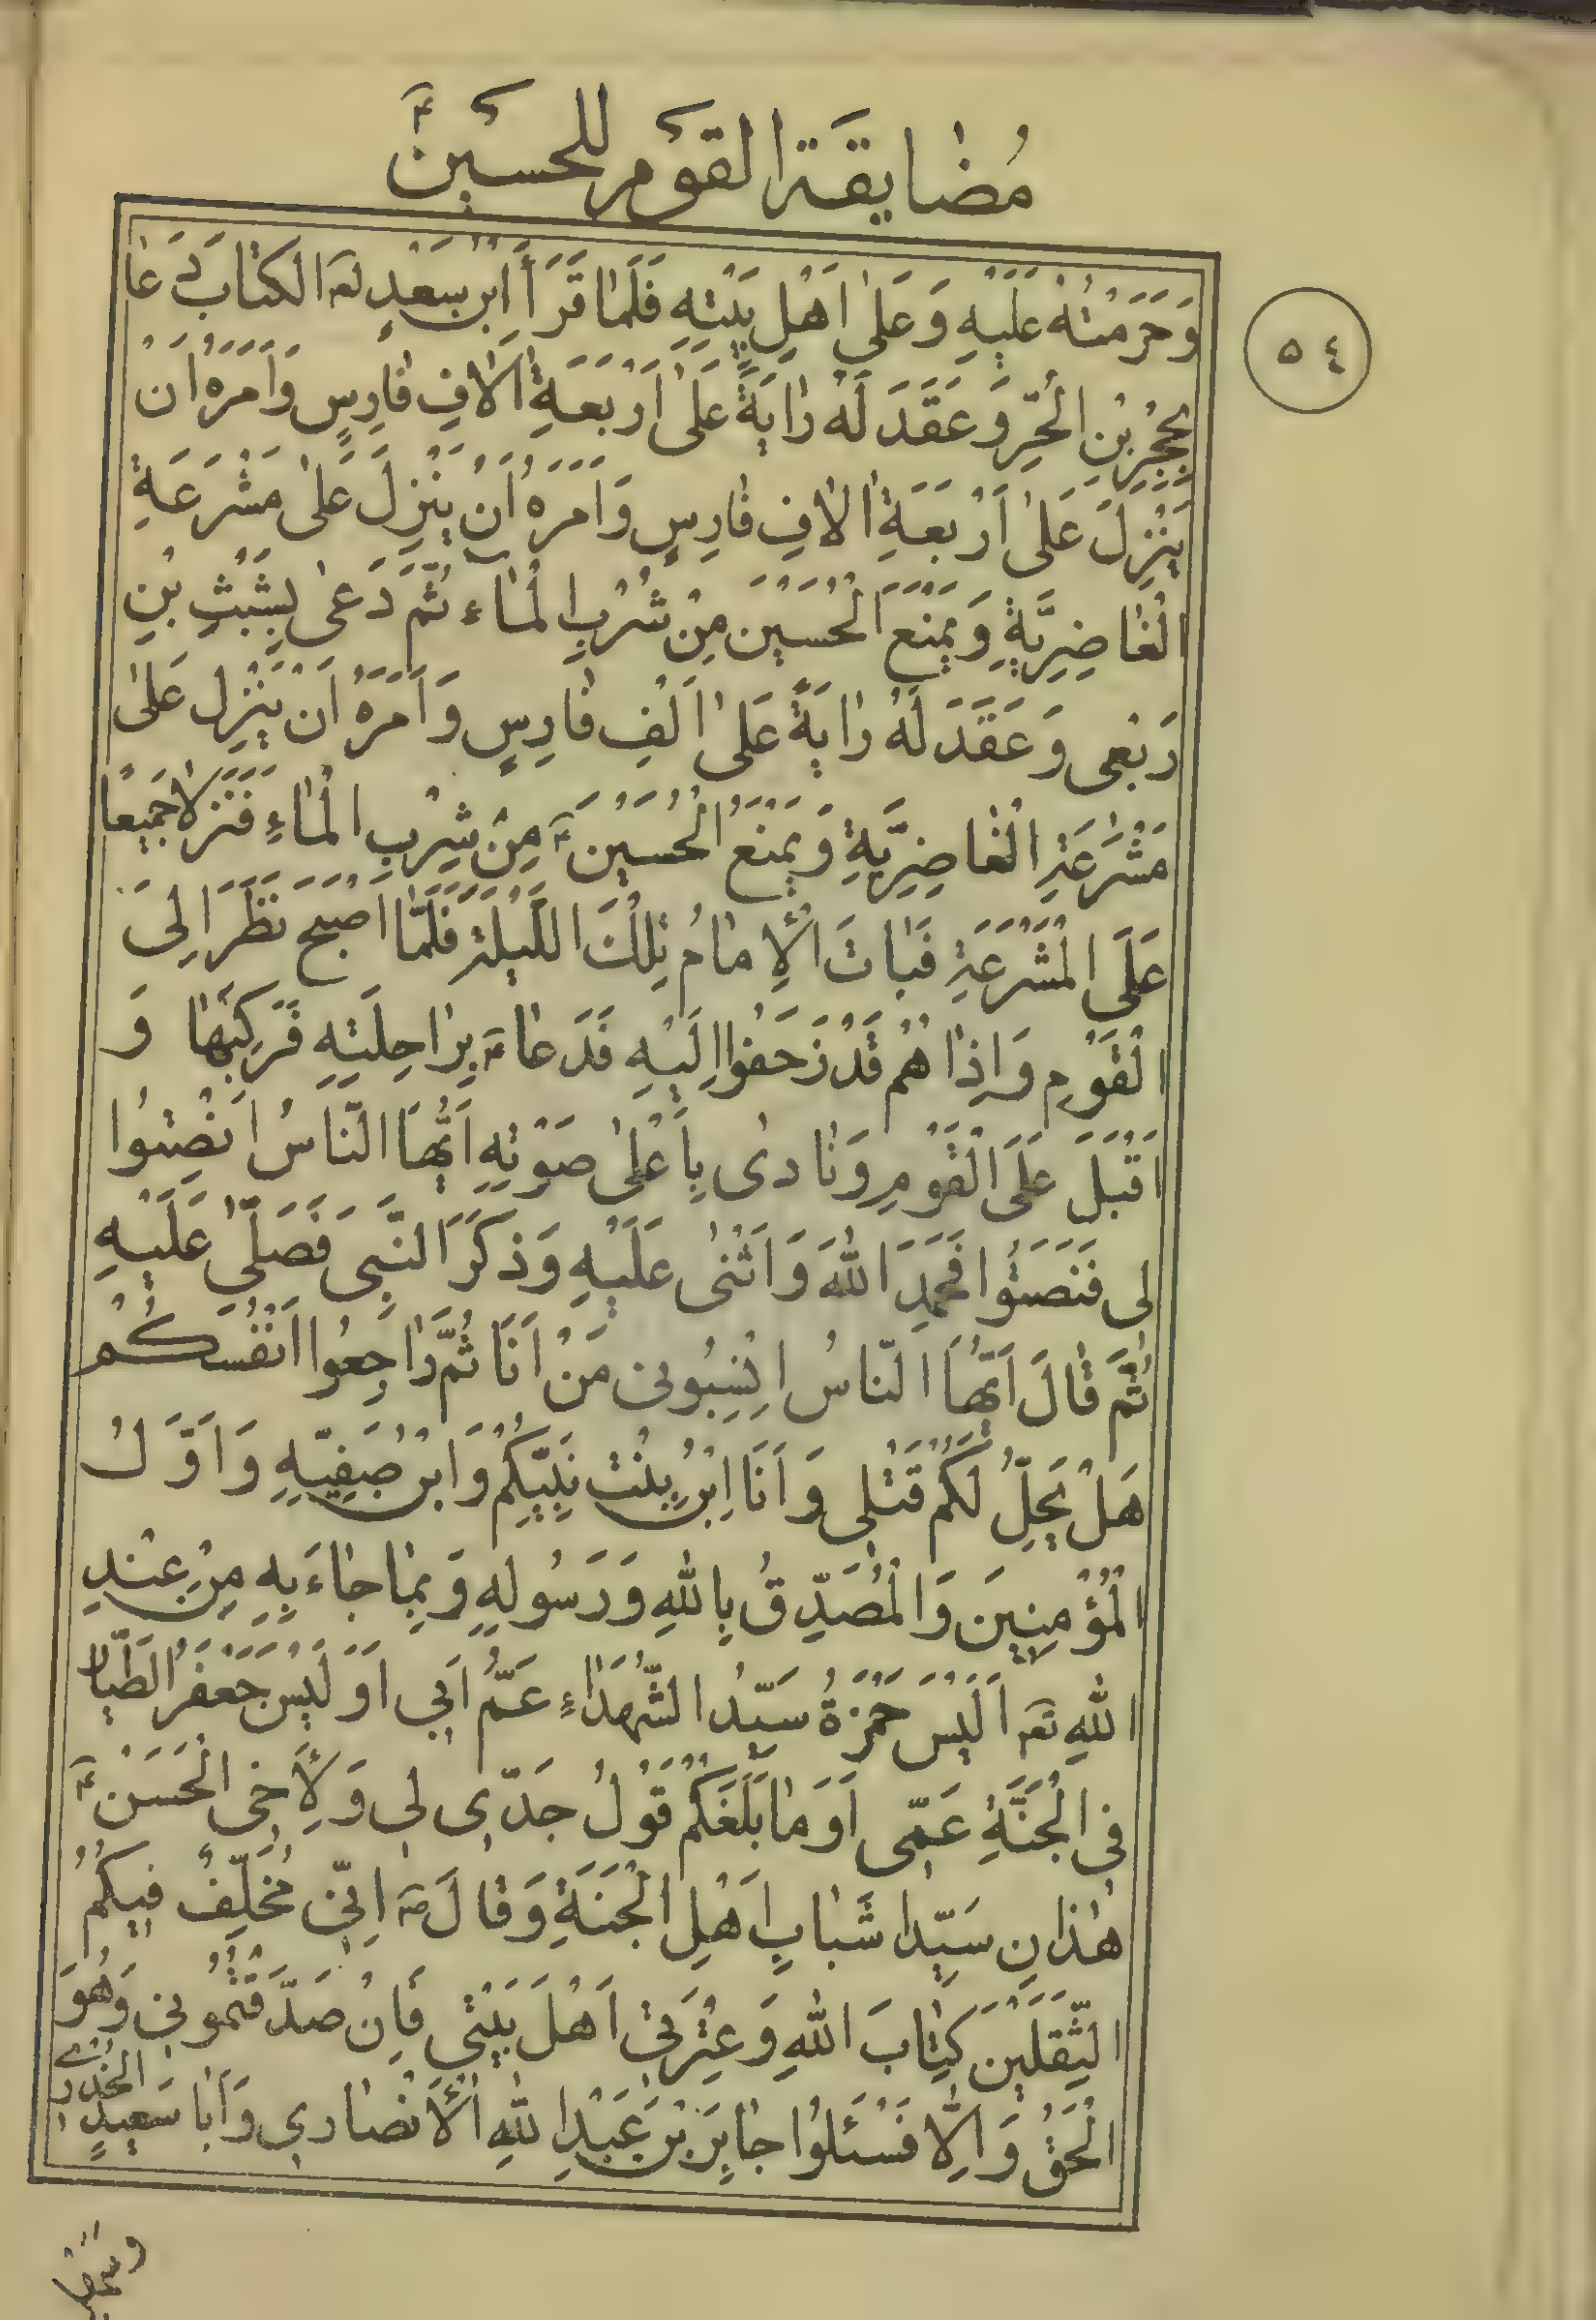 مُضٰايقَة القَوْم للحسَين ؑ
٥٤
وَحَرَمتْهُ عَلَيْهِ وَعَلىٰ اَهْلِ بَيْتِهِ فَلَمّا قَرَأَ اِبْن سَعْدٍ لعه الكتابَ دَعا
بِحُجْرِ بْنِ الْحُرِّ وَعَقَدَ لَهُ رٰايَةً عَلىٰ اَرْبَعَةِ اٰلافِ فارِسٍ وَاَمَرَهُ اَنْ
يَنْزِلَ عَلىٰ اَرْبَعَةِ اٰلافِ فارِسٍ وَاَمَرَهُ اَنْ يَنْزِلَ عَلىٰ مَشْرَعَةِ
الْغٰاضِرِيَّةِ وَيَمْنَعَ الْحُسَيْنَ مِنْ شُرْبِ الْمٰاءِ ثُمَّ دَعىٰ بِشَبَثِ بْنِ
رَبْعى وَعَقَدَ لَهُ رٰايَةً عَلىٰ اَلْفِ فارِسٍ وَاَمَرَهُ اَنْ يَنْزِل عَلىٰ
مَشْرَعَةِ الْغٰاضِرِيَّةِ وَيَمْنَعَ الْحُسَيْنَ ؑ مِنْ شِرْبِ الْمٰاءِ فَنَزَلا جَميعًا
عَلَى الْمَشْرَعَةِ فَباتَ الْإِمٰامُ تِلْكَ اللَّيْلَةِ فَلَمّا اَصْبَحَ نَظَرَ اِلىَ
الْقَوْمِ وَاِذٰا هُمْ قَدْ زَحَفُوا اِلَيْهِ فَدَعٰا ؑ بِرٰاحِلَتِهِ فَرَكِبَهٰا وَ
اَقْبَلَ عَلَى الْقَوْمِ وَنٰادىٰ بِاَعْلىٰ صَوْتِهِ اَيُّهَا النّاسُ اَنْصِتُوا
لى فَنَصَتُوا فَحَمِدَ اللهَ وَاَثْنىٰ عَلَيْهِ وَذَكَرَ النَّبِى فَصَلّىٰ عَلَيْهِ
ثُمَّ قٰالَ اَيُّهَا النّاسُ اِنْسِبُونى مَنْ اَنَا ثُمَّ رٰاجِعُوا اَنْفُسَكُمْ
هَلْ يَحِلُّ لَكُمْ قَتْلى وَاَنَا اِبْن بِنْتِ نَبِيِّكُمْ وَابْن صَفِيِّهِ وَاَوَّلُ
الْمُؤْمِنينَ وَالْمُصَدِّقُ بِاللهِ وَرَسُولِهِ وَبِمٰا جٰاءَ بِهِ مِنْ عِنْدِ
اللهِ تعه اَلَيْسَ حَمْزَةُ سَيِّدُ الشُّهَدٰاءِ عَمُّ اَبي اَوَ لَيْسَ جَعْفَرُ الطَّيّار
فِى الْجَنَّةِ عَمّى اَوَ مٰا بَلَغَكُمْ قَوْلُ جَدّى لى وَلِأَخى الْحَسَنْ ؑ
هٰذٰانِ سَيِّدا شَبٰابِ اَهْلِ الْجَنَةِ وَقٰالَ ص اِنّى مُخَلِّفٌ فيكُمُ
الثِّقَلَيْنِ كِتٰابَ اللهِ وَعِتْرَتى اَهْلَ بَيْتي فَاِنْ صَدَّقْتُمُوني وَهُوَ
الْحَقُّ وَاِلّا فَسْئَلُوا جٰابِرَ بْنَ عَبْدِ اللهِ الْأَنْصٰاري وَاَبٰا سَعيدٍ الخُدْرى